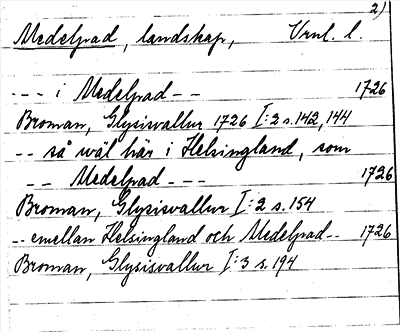 2)
Medelpad, landskap, Vrnl. l.
--- i Medelpad -- 1726
Broman, Glysisvallur 1726 I:2 s. 142, 144
-- så wäl här i Helsingland, som
-- Medelpad --- 1726
Broman, Glysisvallur I:2 s. 154
-- emellan Helsingland och Medelpad -- 1726
Broman, Glysisvallur I:3 s. 194